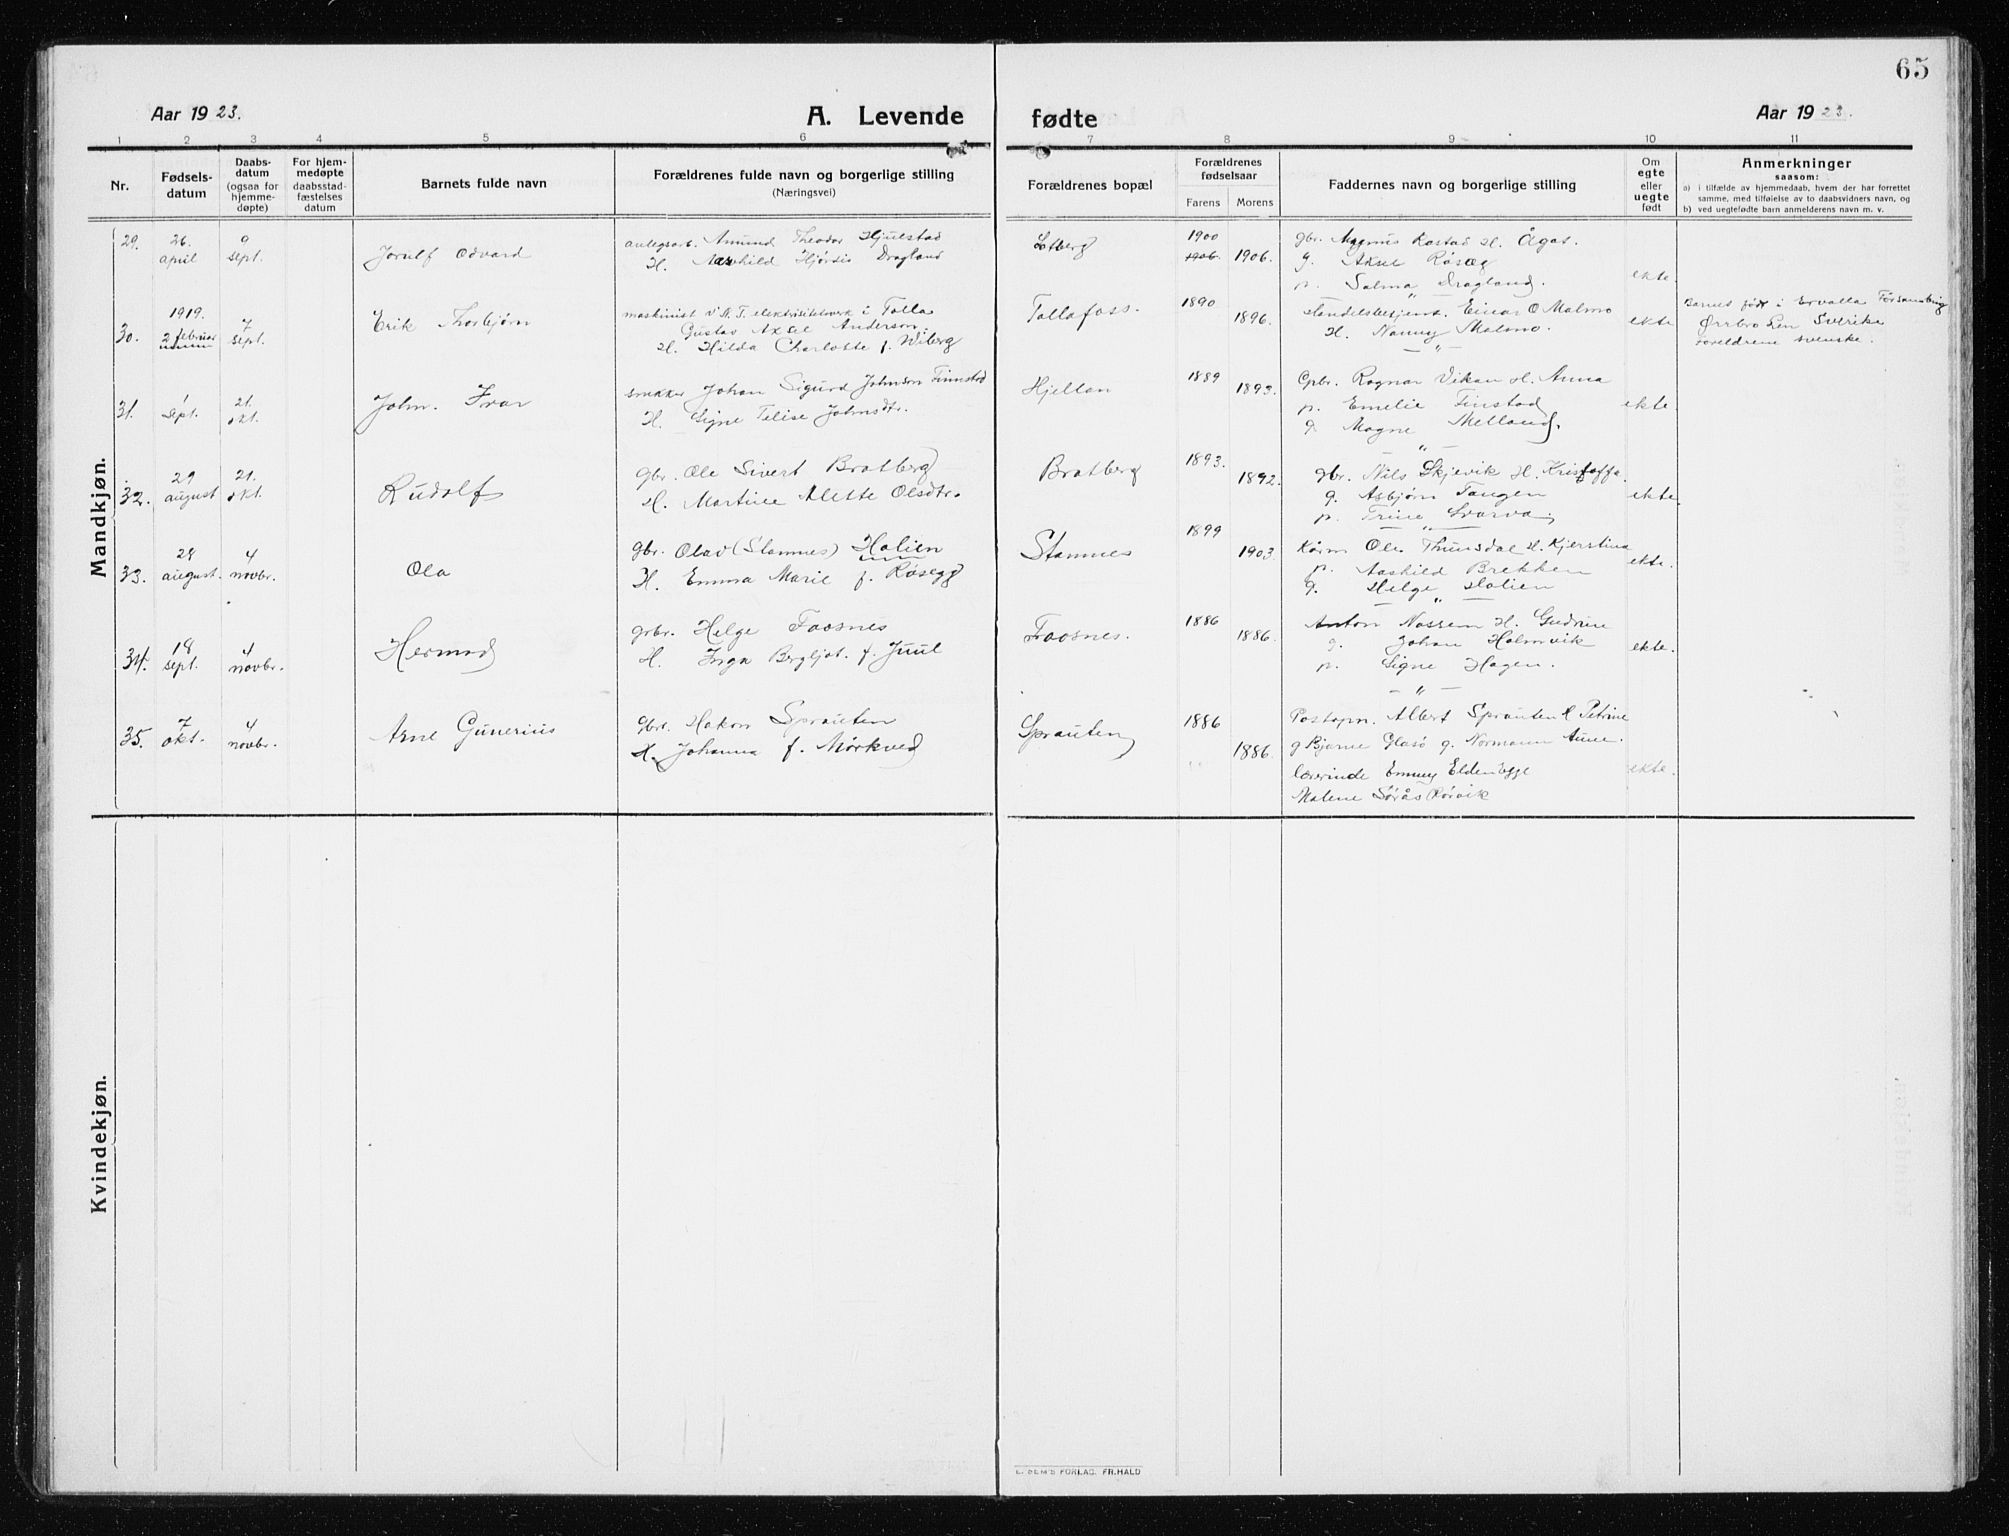 65
Aar 1923.
A. Levende fødte
Aar 1923.
1 2 3 4 5 6 7 8 9 10 11
Nr.
Fødselsdatum
Daabsdatum (ogsaa for hjemmedøpte)
For hjemmedøpte daabsstadfæstelses datum
Barnets fulde navn
Forældrenes fulde navn og borgerlige stilling
(Næringsvei)
Forældrenes bopæl
Forældrenes fødselsaar
Farens Morens
Faddernes navn og borgerlige stilling
Om egte eller uegte født
Anmerkninger
saasom:
a) i tilfælde av hjemmedaab, hvem der har forrettet
samme, med tilføielse av to daabsvidners navn, og
b) ved uegtefødte barn anmelderens navn m. v.
Mandkjøn.
29. 26. april 9 sept. Jorulf Odvard
anlegsarb. Amund Theodor Hjulstad
H. Hjørdis Dragland
1900 1906 1906.
gbr. Magnus Rostad H. Ågot.
g. Aksel Røseg
p. Salma Dragland.
ekte
30. 1919. 2 februar 7 sept. Erik Thorbjørn
maskinist v. N.T. elektrisitetsverk i Follo
Gustav Axel Anderson.
H. Hilda Charlotte f. Wiberg
Follafoss. 1890 1896.
Einar O Malmo
H. Nanny Malmo.
ekte
Barnet født i Ervalla Församling
Ørebro Len Sverike
foreldrene svenske.
31. 1 sept. 21. okt. John. Ivar
snekker Johan Sigurd Johnson Finnstad
H. Signe Telise Johnsdtr.
Hjellan 1889 1893.
Gpbr. Ragnar Vikan H. Anna
p. Emelie Finstad
g. Magne Melland.
ekte.
32. 29 august 21. okt. Rudolf
gbr. Ole Sivert Bratberg
H. Martine Alette Olsdtr.
Bratberg 1893. 1892.
gbr. Nils Skjevik H. Kristoffa.
g. Asbjørn Tangen
p. Trine Svarva.
ekte
33. 28 august. 4 novbr. Ola
gbr. Olav (Stamnes) Holien
H. Emma Marie f. Røsegg
Stamnes 1899 1903
Ole Thunsdal H. Kjerstina
p. Aashild Brekken
g. Helge Holien
ekte.
34. 18 sept. 4 novbr. Hermod
grbr. Helge Faosnes
H. Inga Bergljot. f. Juul
Faosnes. 1886 1886.
Anton Nossem H. Gudrun
g. Johan Holmvik
p. Signe Hagen.
ekte.
35. 7 okt. 4 novbr. Arne Gunerius
gbr. Hakon Sprauten
H. Johanna f. Mørkved
Sprauten 1886 1886.
Postopn. Albert Sprauten H Petrine
g Bjarne Glasø g. Normann Aune.
lærerinde Emmy Elden Egge
Malene Sørås Rørvik
ekte.
Kvindekjøn.
E. SEM'S FORLAG. FR.HALD